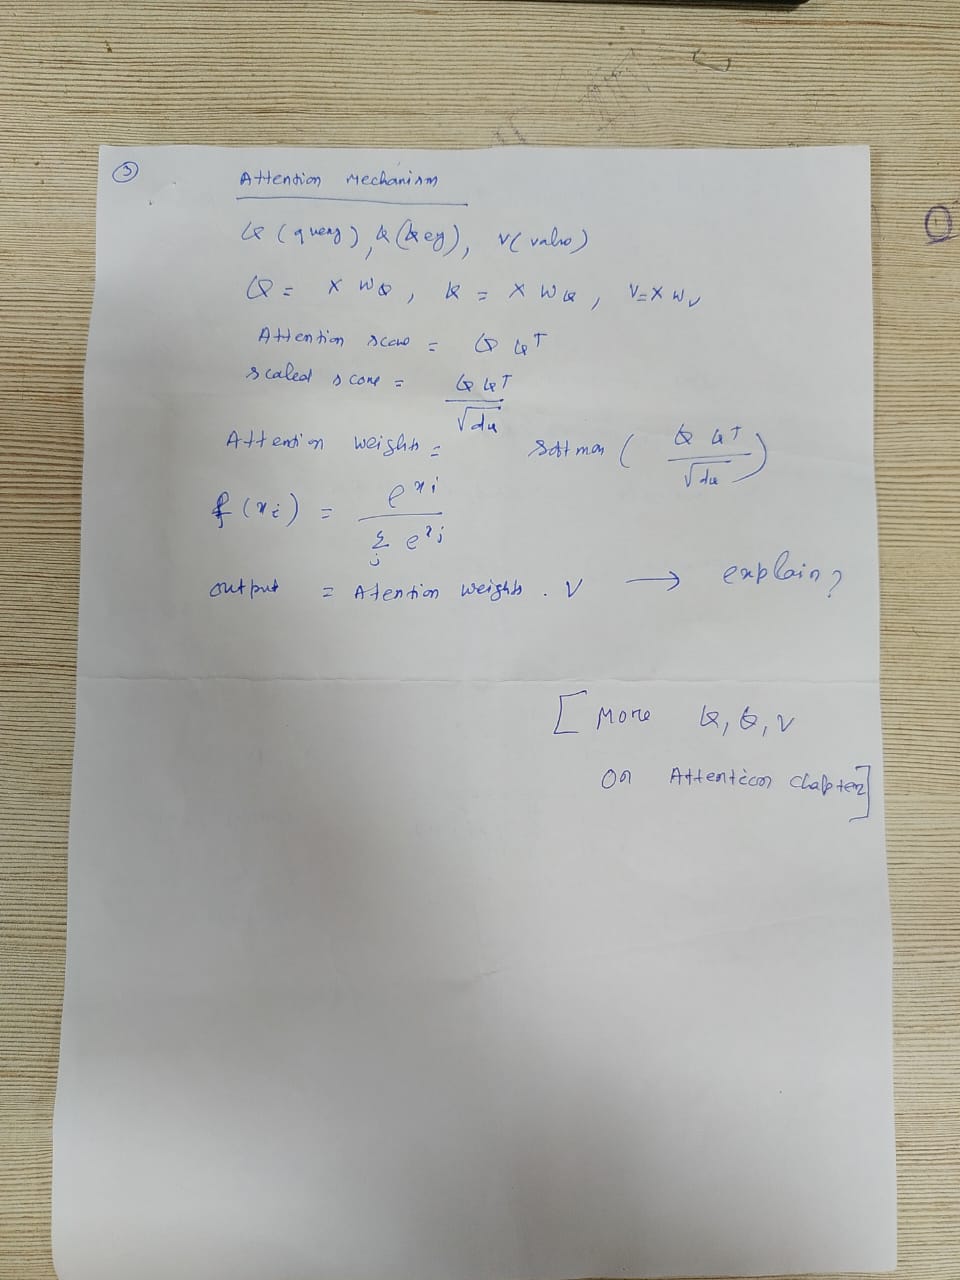 3
Attention Mechanism
Q (query), K (key), V (value)
Q = X W_Q, K = X W_K, V = X W_V
Attention score = Q K^T
scaled score = Q K^T / √d_k
Attention weights = Softmax ( Q K^T / √d_k )
f(x_i) = e^{x_i} / Σ_j e^{x_j}
output = Atention weights . V → explain?
[ More K, Q, V
on Attention chapter ]